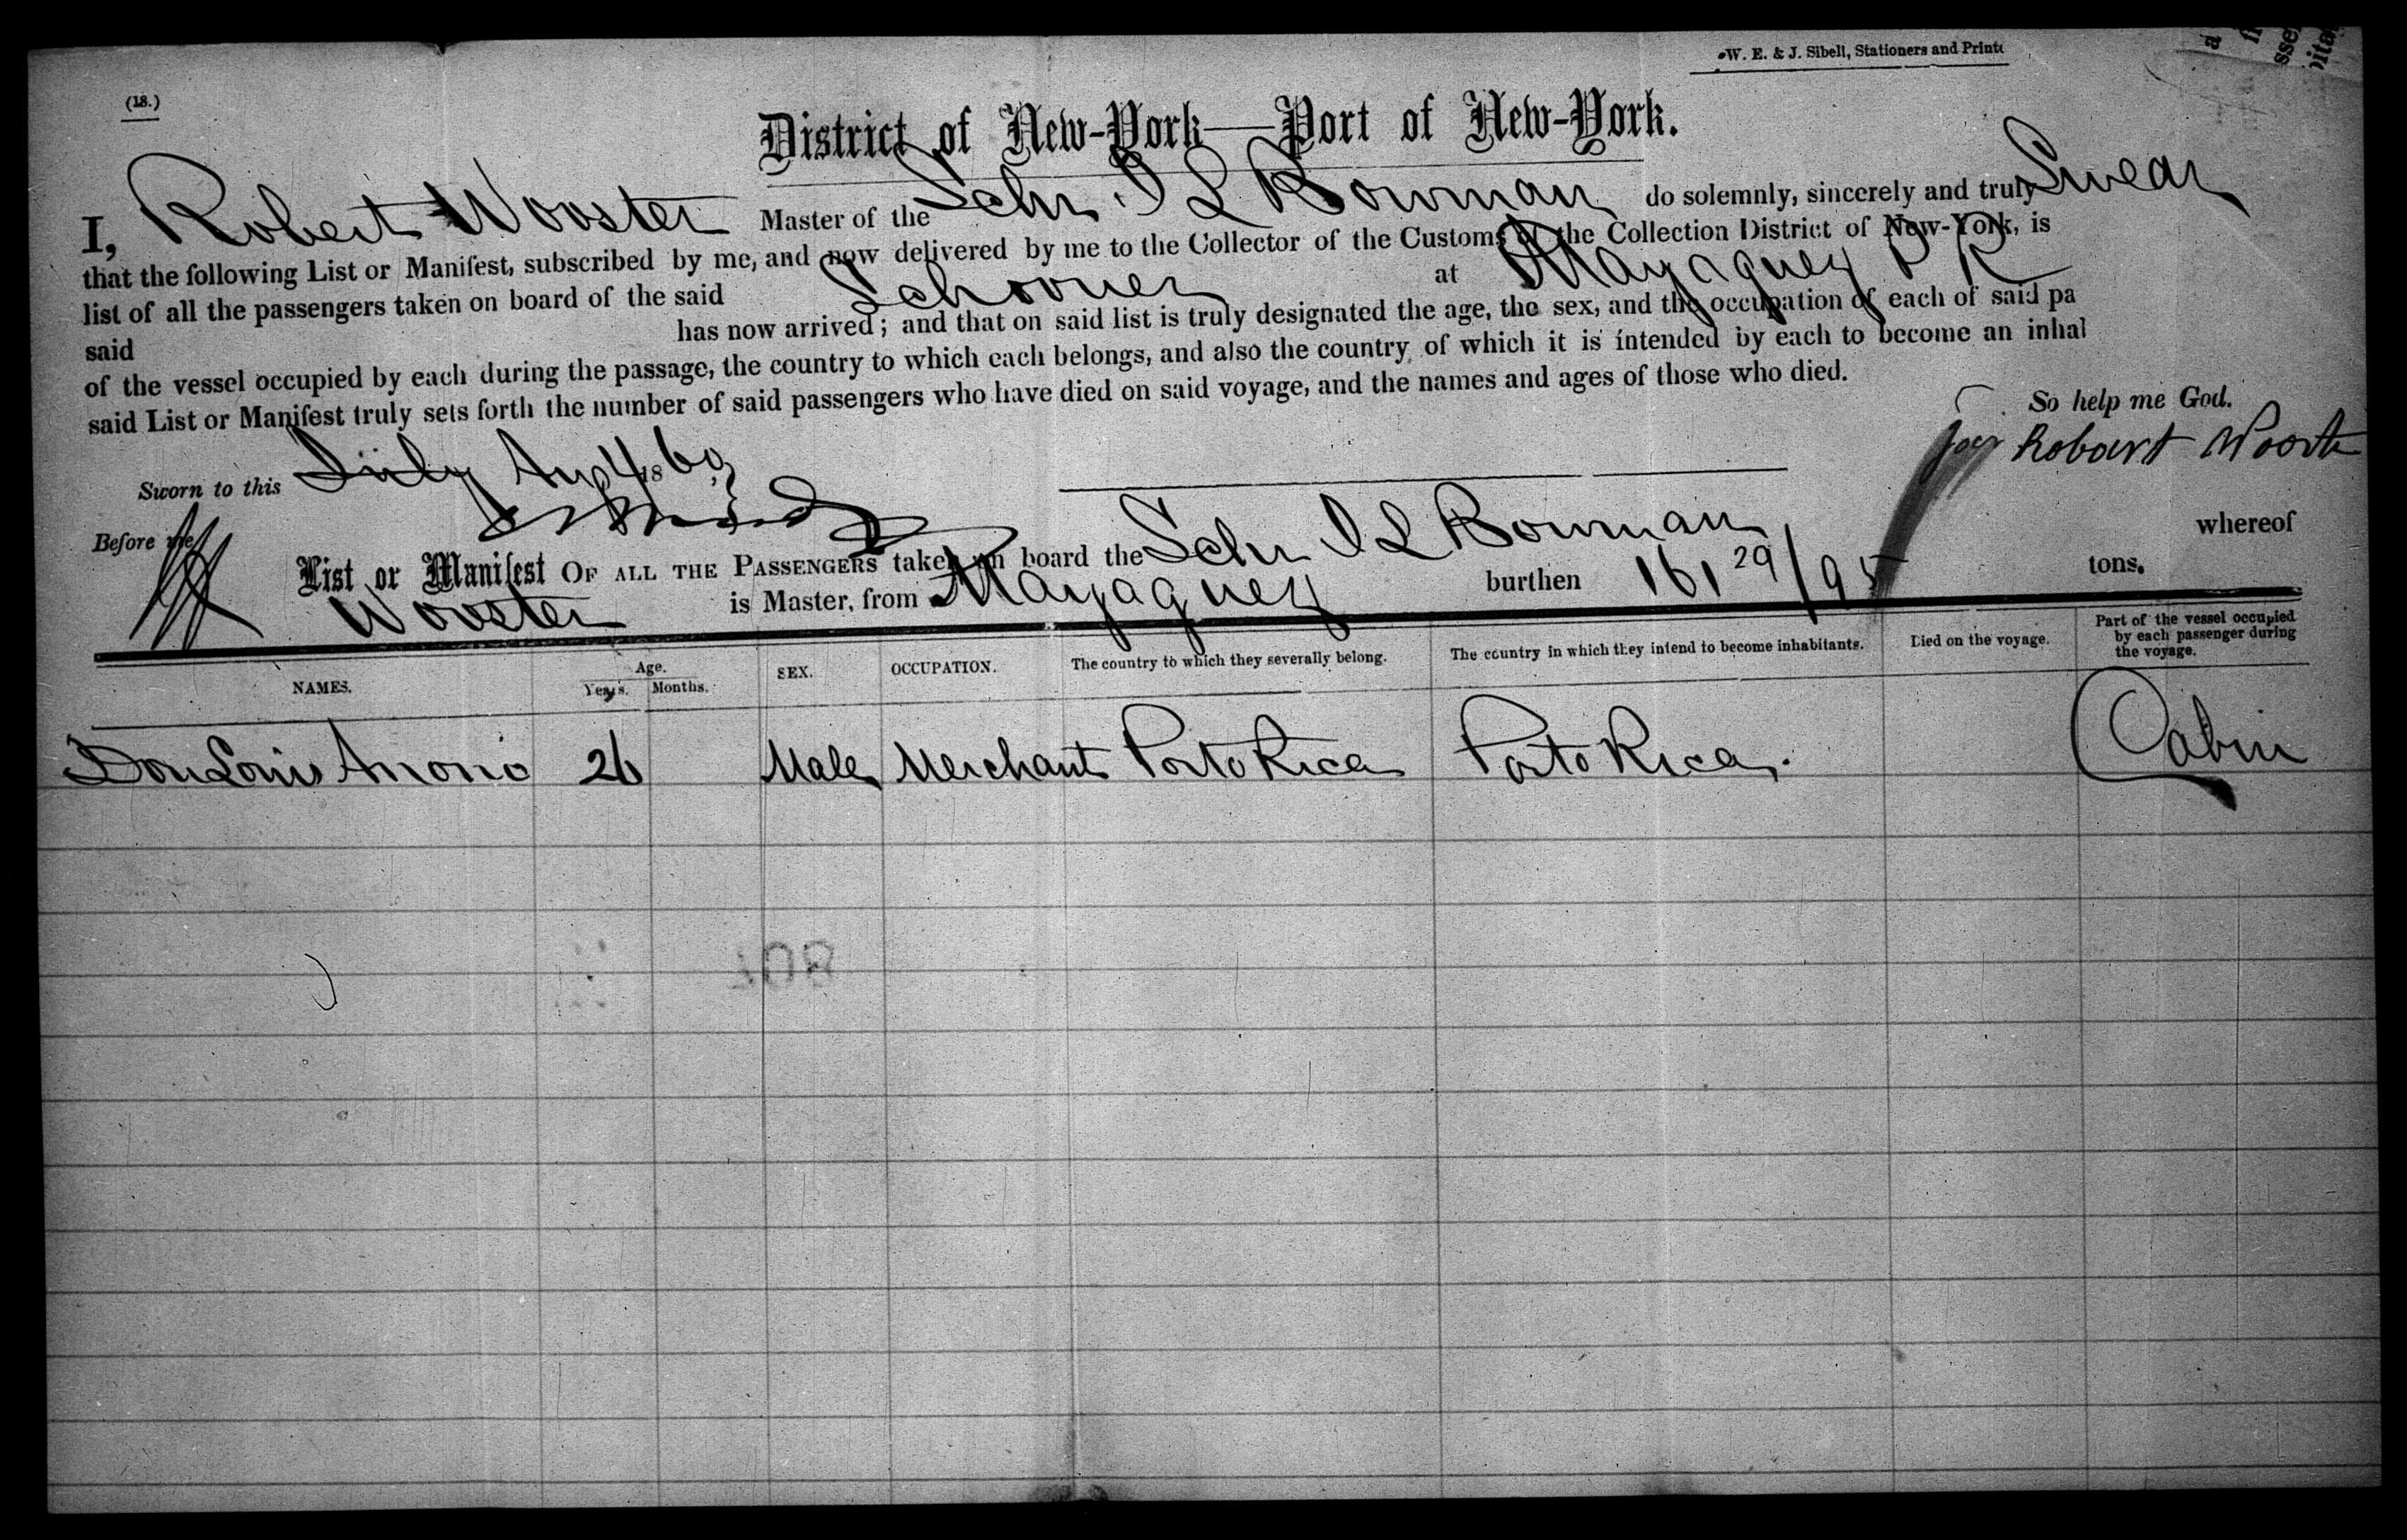 W. E. & J. Sibell, Stationers and Printe
(18.)
District of New-York—Port of New-York.
I, Robert Wooster Master of the Schr I L Bowman do solemnly, sincerely and truly Swear
that the following List or Manifest, subscribed by me, and now delivered by me to the Collector of the Customs of the Collection District of New-York, is
list of all the passengers taken on board of the said Schooner at Mayaguez P R
said has now arrived; and that on said list is truly designated the age, the sex, and the occupation of each of said pa
of the vessel occupied by each during the passage, the country to which each belongs, and also the country of which it is intended by each to become an inhal
said List or Manifest truly sets forth the number of said passengers who have died on said voyage, and the names and ages of those who died.
So help me God.
Robart Wooste
Sworn to this July Aug 4 18 60
Before me
List or Manifest OF ALL THE PASSENGERS taken on board the Schr I L Bowman whereof
Wooster is Master, from Mayaguez burthen 161 29/95 tons.
NAMES. Age. Years. Months. SEX. OCCUPATION. The country to which they severally belong. The country in which they intend to become inhabitants. Died on the voyage. Part of the vessel occupied by each passenger during the voyage.
Don Louis Anono 26 Male Merchant Porto Rica Porto Rica. Cabin